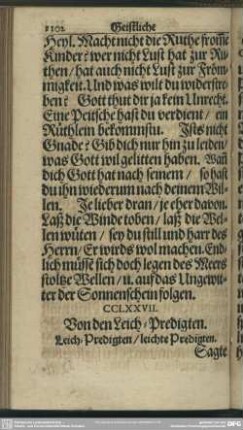 1102 Geistliche
Heyl. Macht nicht die Ruthe from̃e
Kinder? wer nicht Lust hat zur Ru-
then / hat auch nicht Lust zur From-
migkeit. Und was wilt du widerstre-
ben? Gott thut dir ja kein Unrecht.
Eine Peitsche hast du verdient / ein
Rüthlein bekommstu. Ists nicht
Gnade? Gib dich nur hin zu leiden /
was Gott wil gelitten haben. Wañ
dich Gott hat nach seinem / so hast
du ihn wiederum nach deinem Wil-
len. Je lieber dran / je eher davon.
Laß die Winde toben / laß die Wel-
len wüten / sey du still und harr des
Herrn / Er wirds wol machen. End-
lich müsse sich doch legen des Meers
stoltze Wellen / u. auf das Ungewit-
ter der Sonnenschein folgen.
CCLXXVII.
Von den Leich-Predigten.
Leich-Predigten / leichte Predigten.
Sagte